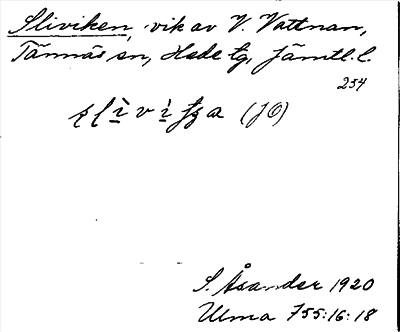 Sliviken, vik av V. Vattnan,
Tännäs sn, Hede tg, Jämtl. l.
254
(JÖ)
S. Åsander 1920
Ulma 755:16:18